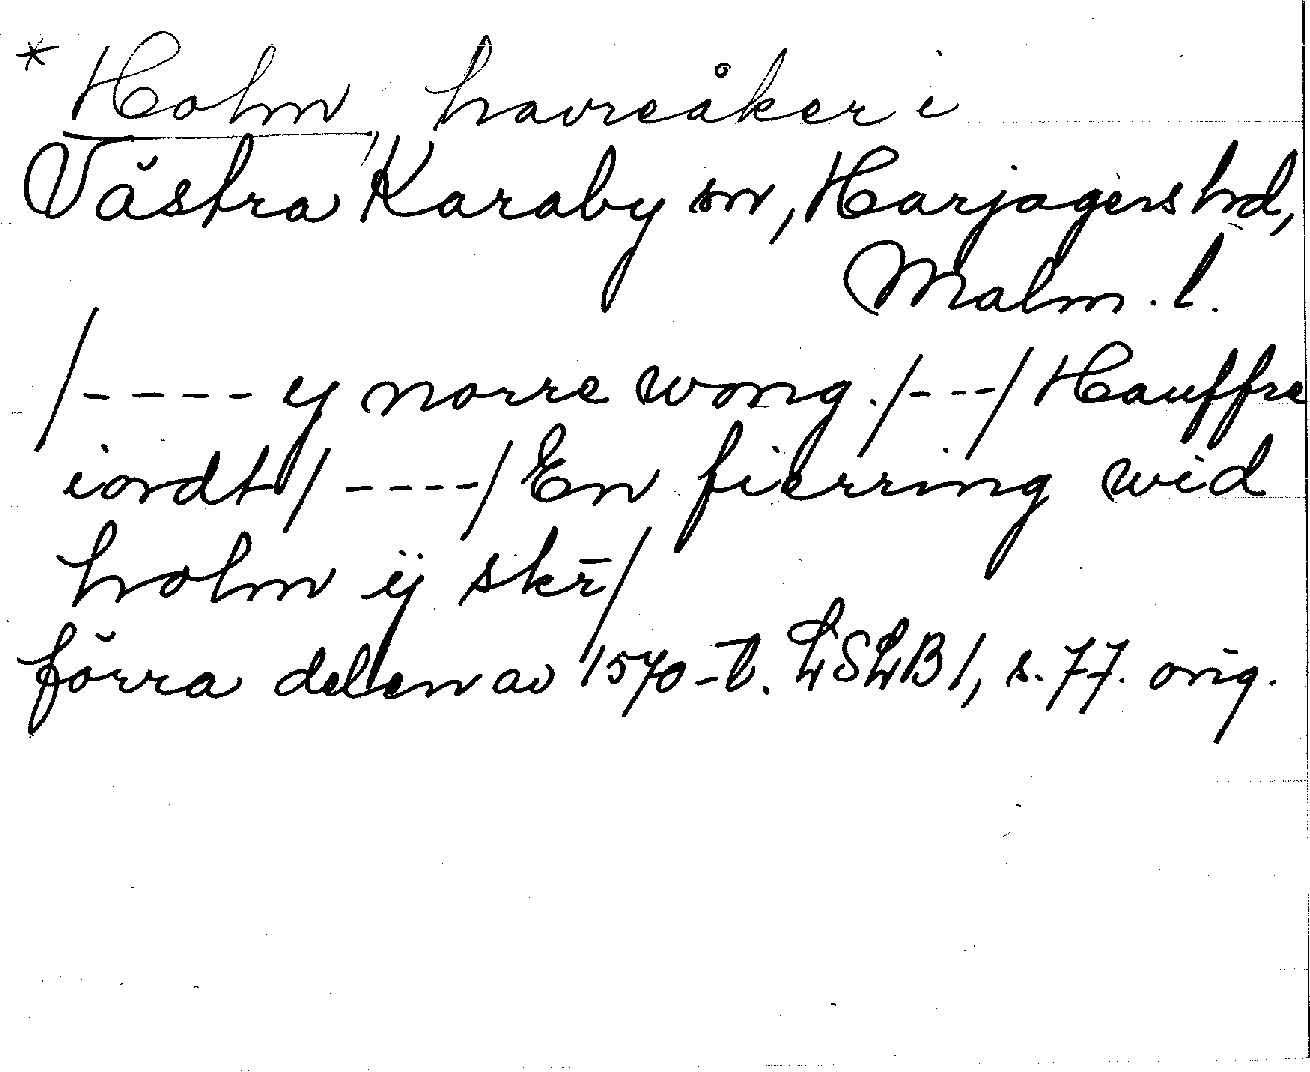 * Holm, havreåker i
Västra Karaby sn, Harjagers hd,
Malm. l.
/---- ÿ norre wong./---/ Hauffre
iordt/ ----/ En fierring wid
holm ÿ skr̄/
förra delen av 1570-t. LSLB 1, s. 77. orig.